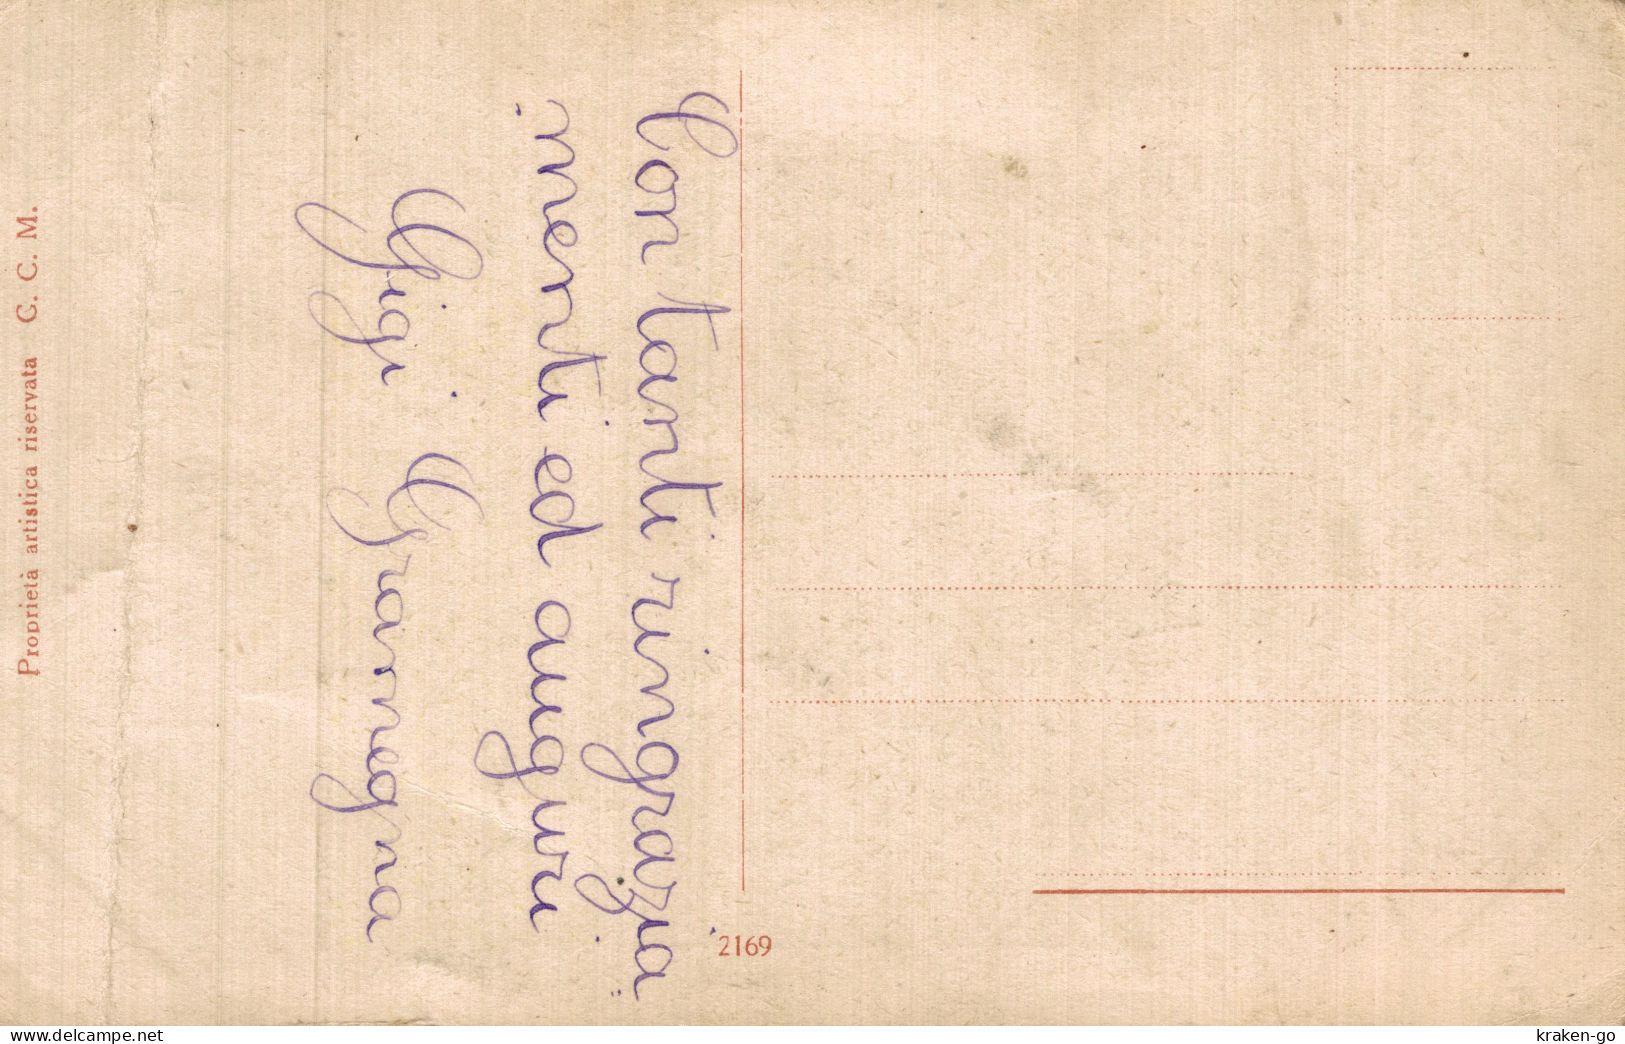 Con tanti ringrazia"
menti ed auguri
Gigi Gramegna
Proprietà artistica riservata C. C. M.
2169
www.delcampe.net
kraken-go